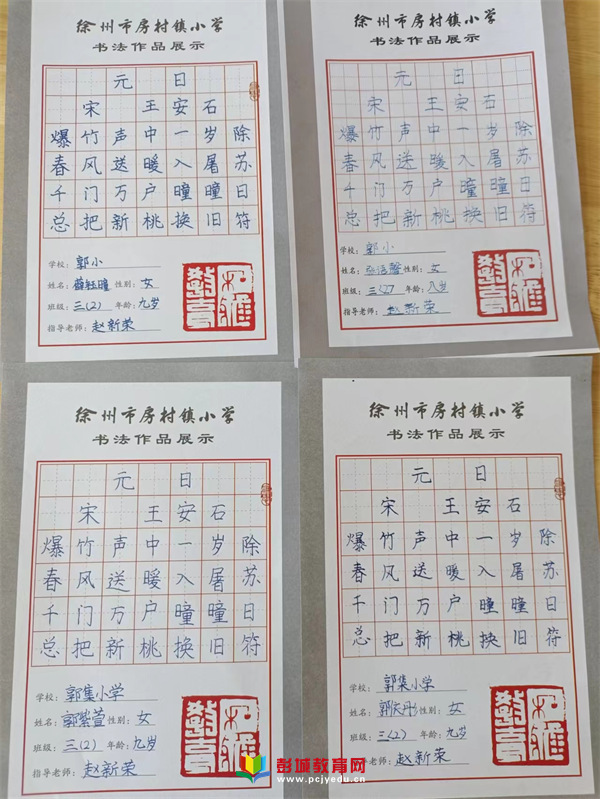 徐州市房村镇小学
书法作品展示
元日
宋 王安石
爆竹声中一岁除
春风送暖入屠苏
千门万户曈曈日
总把新桃换旧符
学校：郭小
姓名：薛钰曈 性别：女
班级：三(2) 年龄：九岁
指导老师：赵新荣
徐州市房村镇小学
书法作品展示
元日
宋 王安石
爆竹声中一岁除
春风送暖入屠苏
千门万户曈曈日
总把新桃换旧符
学校：郭小
姓名： 性别：女
班级： 年龄：八岁
指导老师：赵新荣
徐州市房村镇小学
书法作品展示
元日
宋 王安石
爆竹声中一岁除
春风送暖入屠苏
千门万户曈曈日
总把新桃换旧符
学校：郭集小学
姓名：郭紫萱 性别：女
班级：三(2) 年龄：九岁
指导老师：赵新荣
徐州市房村镇小学
书法作品展示
元日
宋 王安石
爆竹声中一岁除
春风送暖入屠苏
千门万户曈曈日
总把新桃换旧符
学校：郭集小学
姓名： 性别：女
班级：三(2) 年龄：九岁
指导老师：赵新荣
彭城教育网
www.pcjyedu.cn